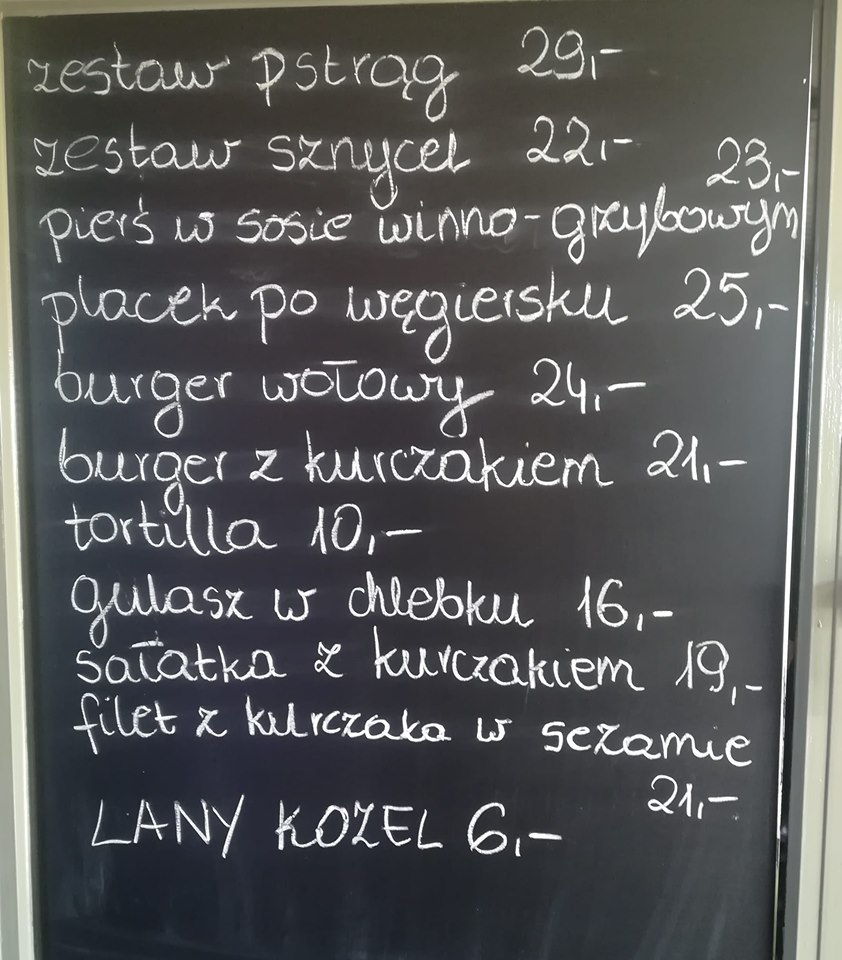 zestaw pstrąg 29,-
zestaw sznycel 22,-
pierś w sosie winno-grzybowym 23,-
placek po węgiersku 25,-
burger wołowy 24,-
burger z kurczakiem 21,-
tortilla 10,-
gulasz w chlebku 16,-
sałatka z kurczakiem 19,-
filet z kurczaka w sezamie
21,-
LANY KOZEL 6,-